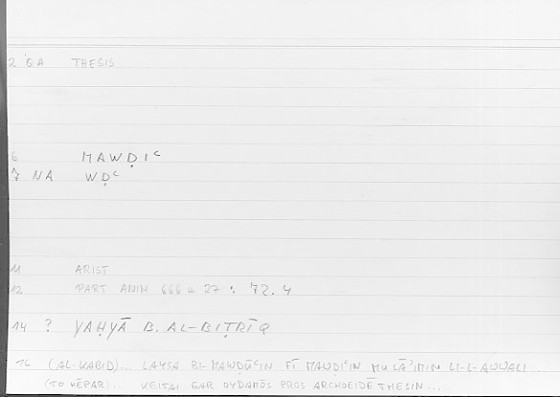 2 'QA THESIS
6 MAWḌIʿ
7 NA WḌʿ
11 ARIST
12 PART ANIM 666 a 27 : 72.4
14 ? YAḤYĀ B. AL-BIṬRĪQ
16 (AL-KABID)... LAYSA BI-MAWḌŪʿIN FĪ MAWḌIʿIN MULĀʾIMIN LI-L-AWWALI...
(TO HĒPAR)... KEITAI GAR OYDAMŌS PROS ARCHOEIDĒ THESIN...